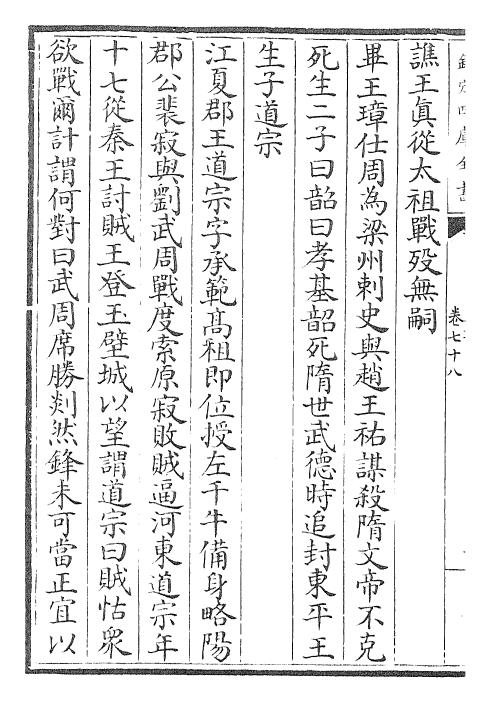 欽定四庫全書
卷七十八
譙王真從太祖戰歿無嗣
畢王璋仕周為梁州刺史與趙王祐謀殺隋文帝不克
死生二子曰韶曰孝基韶死隋世武德時追封東平王
生子道宗
江夏郡王道宗字承範髙祖即位授左千牛備身略陽
郡公裴寂與劉武周戰度索原寂敗賊逼河東道宗年
十七從秦王討賊王登玉壁城以望謂道宗曰賊怙衆
欲戰爾計謂何對曰武周席勝剡然鋒未可當正宜以